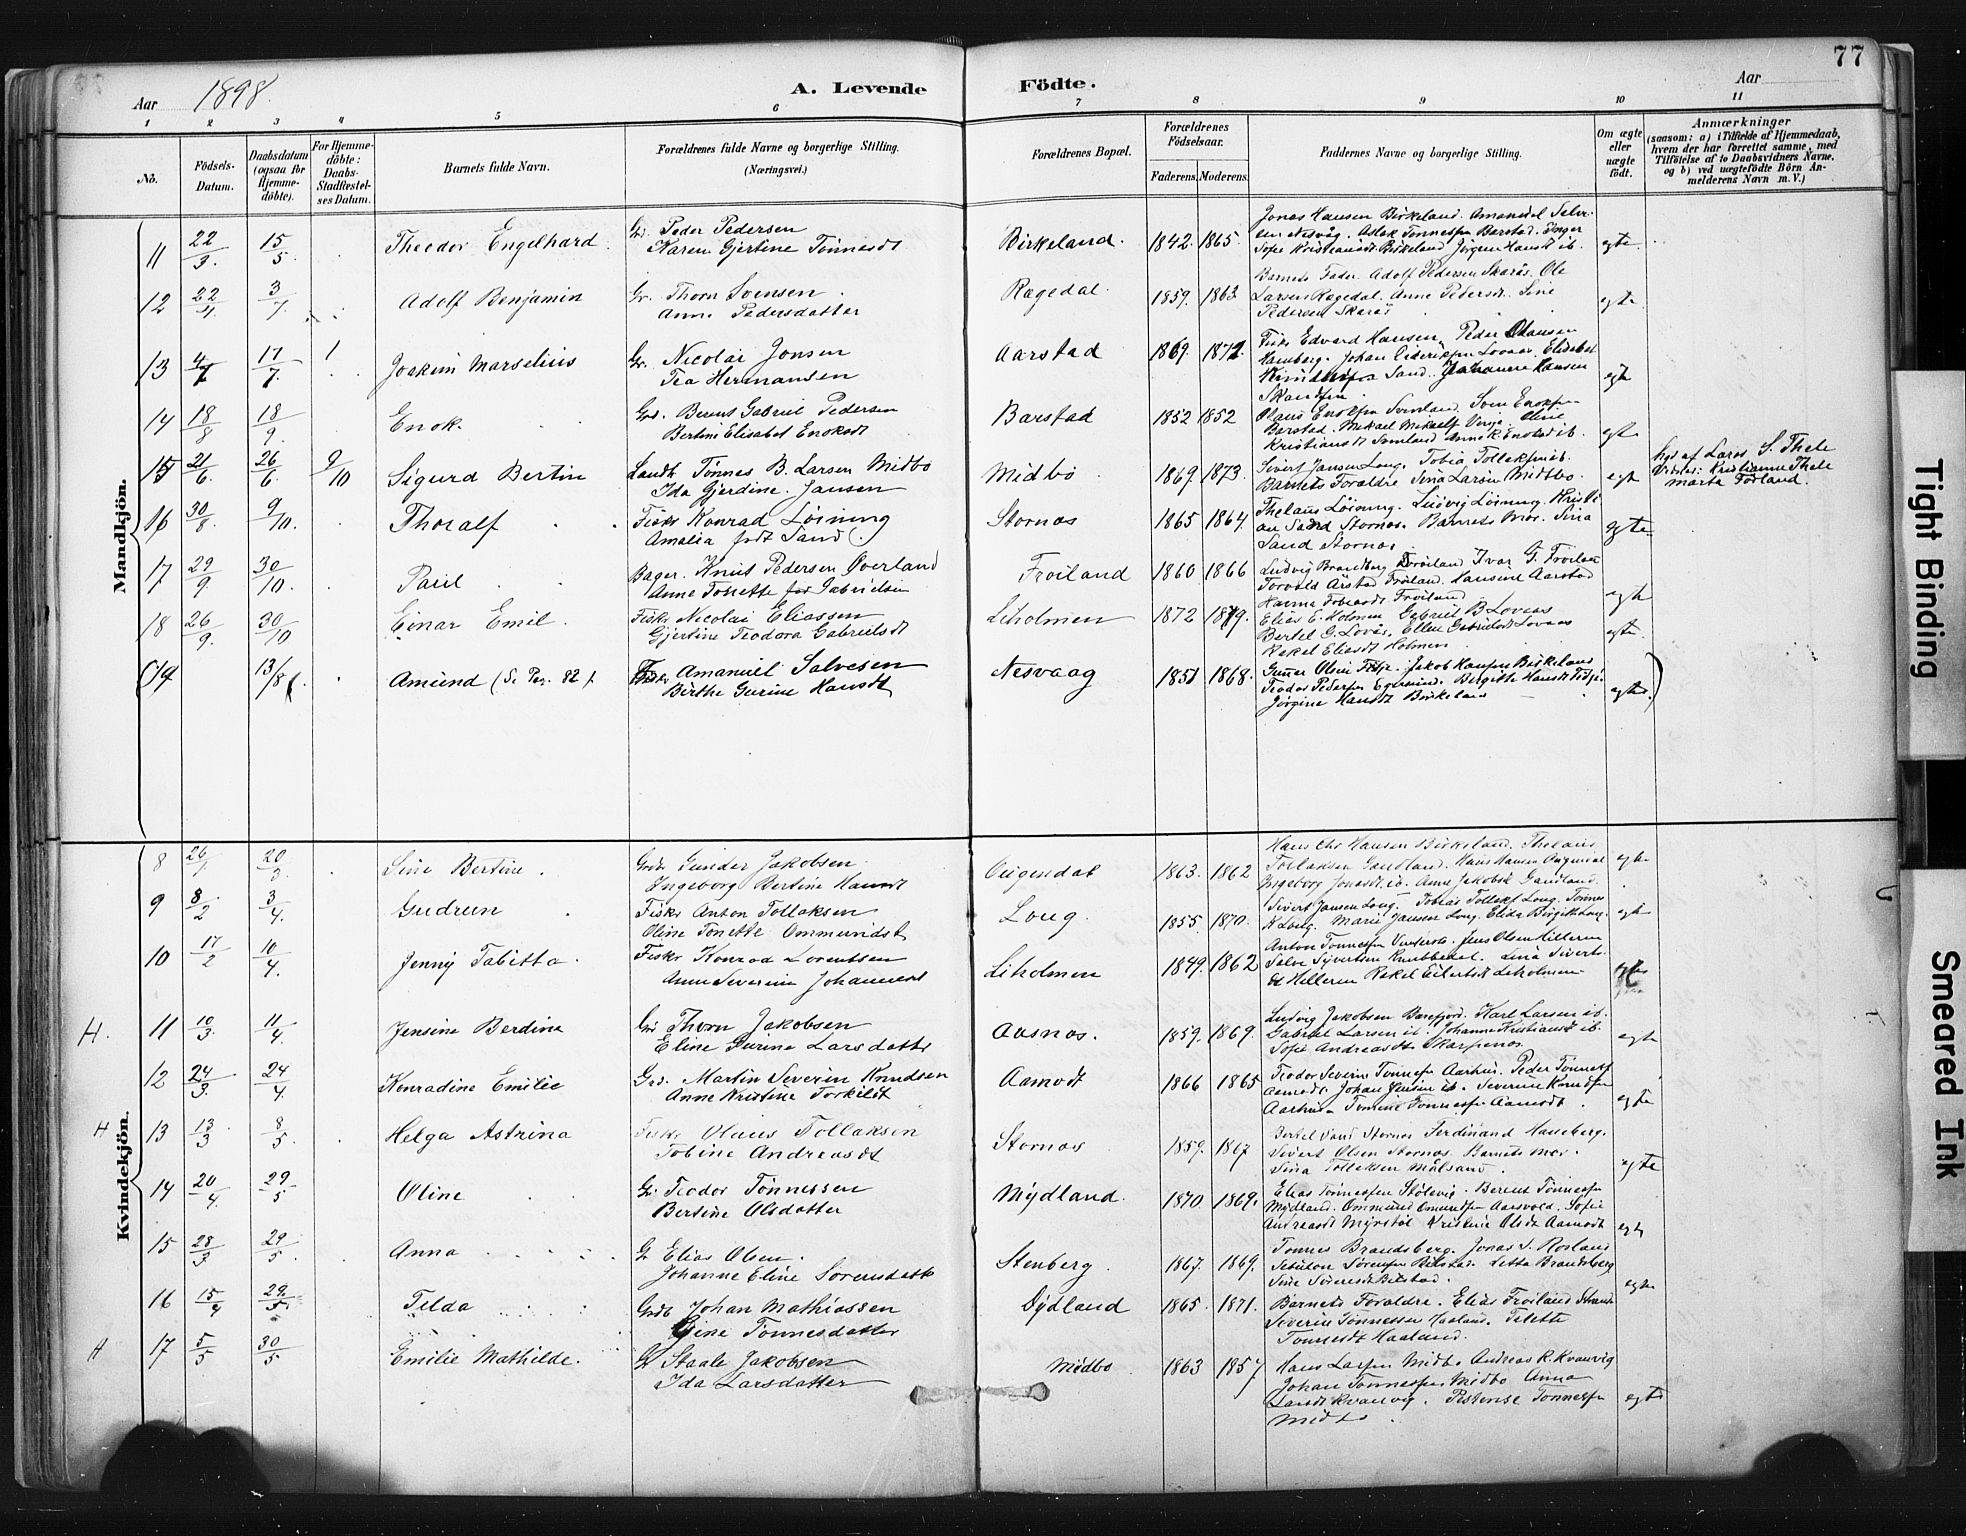 77
Aar 1898.
A. Levende Födte.
Aar
1 2 3 4 5 6 7 8 9 10 11
No.
Födsels-Datum.
Daabsdatum (ogsaa for Hjemmedöbte).
For Hjemmedöbte: Daabs-Stadfestelses Datum.
Barnets fulde Navn.
Forældrenes fulde Navne og borgerlige Stilling.
(Næringsvei.)
Forældrenes Bopæl.
Forældrenes Födselsaar.
Faderens. Moderens.
Faddernes Navne og borgerlige Stilling.
Om ægte eller uægte födt.
Anmærkninger
(saasom: a) i Tilfælde af Hjemmedaab, hvem der har forrettet samme, med Tilföielse af to Daabsvidners Navne, og b) ved uægtefödte Börn Anmelderens Navn m. V.)
Mandkjön.
11 22/3. 15/5 Theodor Engelhard. Gr. Peder Pedersen
Karen Gjertine Tönnesdt
Birkeland. 1842. 1865.
Jonas Hansen Birkeland. Amanuel Salve-
sen Nesvåg. Aslak Tönnesen Berstad. Inger
Sofie Kristiansdt Birkeland Jörgine Hansdt ib. egte.
12 22/4 3/7 Adolf Benjamin Gr. Thorn Svensen.
Anne Pedersdatter
Rægedal. 1859. 1863
Barnets Fader. Adolf Pedersen Skarås. Ole
Larsen Rægedal. Anne Pedersdt. Sine
Pedersen Skarås egte.
13 17/7. Joakim Marselius Gr. Nicolai Jonsen
Tea Hermansen
Aarstad 1869. 1872.
Fisk Edvard Hansen, Peder Olausen
Hamberg. Johan Lovaas. Elisabet
Sand. Johanne Hansen egte
14 18/8 18/9. Enok. Grd. Berent Gabriel Pedersen
Bertine Elisabet Enoksdt
Barstad 1852 1852
Olaus Enoksen Svenland. Sven Enoksen
Barstad. Mikael Mikaelsen Oline
Kristiansdt Svenland Anne K. Enstad ib. egte
15 21/6. 26/6 9/10 Sigurd Bertin Landh. Tönnes B. Larsen Midbö
Ida Gjerdine. Jansen
Midbö 1869. 1873.
Sivert Jansen Loug. Tobia Tollaksen ib.
Barnets Foraldre Sina Larsen Midbö. egte
hjd. af Lars S. Thele
Vidner: Kristianne Thele
Marta Förland.
16 30/8. 9/10. Thoralf Fiskr Konrad Löining
Amalia födt Sand.
Stornæs 1865 1864.
Thelaus Löining. Ludvig Löining. Kristi
an Sand Stornæs. Barnets Mor. Sina
Sand Stornæs egte
17 29/9. 30/10. Paul Bager. Knut Pedersen Överland
Anne Tonette före Gabrielsen
Fröiland 1860 1866
Ludvig Brandberg Fröiland Ivar G. Fröiland
Torvald Årstad Fröiland. Hansine Aarstad
Hanna Tobiasdt Fröiland egte
18 26/9. 30/10 Einar Emil. Fiskr. Nicolai Eliassen
Gjertine Teodora Gabrielsdt
Liholmen 1872 1879.
Elias E. Holmen Gabriel B Lovaas
Bertel G. Lovås. Ellen Gabrielsdt Lovaas
Rakel Eliasdt Holmen. egte.
(19 13/8 Amund (Se Pag. 82). Fiskr Amanuel Salvesen
Birthe Gurine Hansdt
Nesvaag 1851 1868.
Gunner Olsen Jakob Hansen Birkeland
Teodor Pedersen Egersund. Birgitte Hansdt
Jörgine Hansdt Birkeland egte.)
Kvindekjön.
8 26/1. 20/3. Sine Bertine. Grdr Gunder Jakobsen.
Ingeborg Bertine Hansdt
Augendal 1863. 1862
Hans Chr Hansen Birkeland. Thelaus
Tollaksen Gaudland. Hans Hansen Augendal
Ingeborg Jonasdt ib. Anne Jakobsd Gaudland. egte
9 8/2 3/4. Gudrun Fiskr Anton Tollaksen
Oline Tonette Ommundsdt
Loug. 1855. 1870.
Sivert Jansen Loug. Tobias Tolleks Loug. Tönnes
K Loug. Marie Jansen Loug. Elida Birgitte Loug. egte
10 17/2 10/4. Jenny Tabitta. Fiskr Konrad Lorentsen
Anne Severine Johannesdt
Liholmen 1849. 1862
Anton Tonnesen Jens Olsen Hilleren
Salve Syvertsen Knubbedal. Lina Siverts
dt Hilleren Rakel Eilertsdt Liholmen egte
H. 11 10/3. 11/4. Jensine Berdina Grd Thorn Jakobsen
Eline Gurine Larsdatter
Aasnæs. 1859. 1869.
Ludvig Jakobsen Karl Larsen ib.
Gabriel Larsen ib. Johanne Kristiansdt ib.
Sofie Andreasdt Skarpenæs. egte
12 24/3. 24/4. Konradine Emilie Grd. Martin Severin Knudsen
Anne Kristine Torkilsdt
Aamodt 1866 1865
Teodor Severin Tonnesen Aarhus. Peder Tönnesen
Aamodt Johan Jensen ib. Severine Knudsen
Aarhus Tomine Tönnesen Aamodt. egte
H 13 13/3 8/5. Helga Astrina Fiskr Olaus Tollaksen
Tobine Andreasdt
Stornæs 1859. 1867
Bertel Sand Stornæs Ferdinand Haneberg.
Sivert Olsen Stornæs. Barnets Mor.
Sina Tollaksen Målsand. egte
14 20/4. 29/5 Oline Gr. Teodor Tönnessen
Bertine Olsdatter
Mydland. 1870 1869.
Elias Tönnessen Stölevig. Berent Tönnesen
Mydland. Ommund Omundsen Aarsvold. Sofie
Andreasdt Myrstöl Kristine Olsdt Aamodt egte
15 28/3 29/5. Anna Gr Elias Olsen.
Johanne Eline Sorensdatter
Stenberg. 1867. 1869.
Tonnes Brandsberg. Jonas S. Rosland
Sebulon Sörensen Bilstad. Letta Brandsberg
Sine Sörensdt Bilstad. egte
16 15/4 29/5. Tilda Grdb Johan Mathiassen
Gine Tönnesdatter
Dydland 1865. 1871.
Barnets Foraldre. Elias Fröiland Strand
Severin Tönnessen Haaland. Telette
Tonnesdt Haaland.
H 17 5/5 30/5 Emilie Mathilde. Gr Staale Jakobsen
Ida Larsdatter
Midbö 1863 1857
Hans Larsen Midbö Andreas R. Kvanvig
Johan Tönnesen Midbö Anna
Larsdt Kvanvig. Tönnesen
Midbö. egte
Tight Binding
Smeared Ink